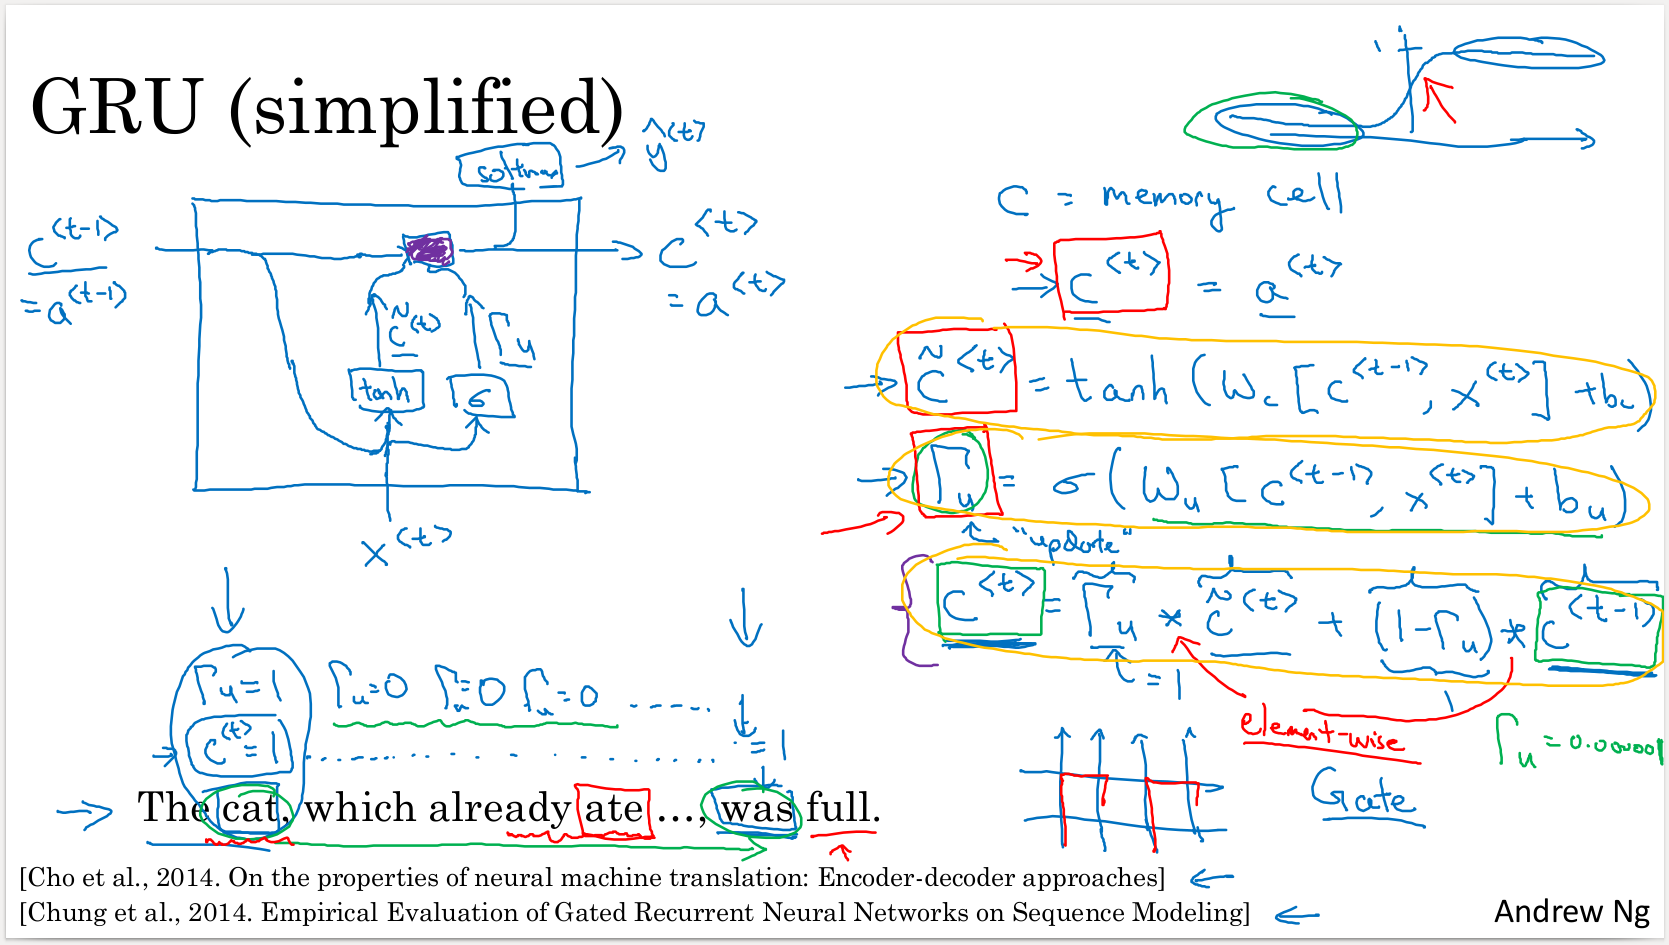 GRU (simplified)
softmax
ŷ<t>
c<t-1>
= a<t-1>
c̃<t>
Γu
tanh
σ
c<t>
= a<t>
x<t>
1
C = memory cell
c<t> = a<t>
c̃<t> = tanh (Wc [c<t-1>, x<t>] + bc)
Γu = σ (Wu [c<t-1>, x<t>] + bu)
"update"
c<t> = Γu * c̃<t> + (1-Γu) * c<t-1>
= 1
element-wise
Γu = 0.000001
Gate
Γu=1 Γu=0 Γu=0 Γu=0 .....
c<t>=1 ........ = 1
The cat, which already ate ..., was full.
[Cho et al., 2014. On the properties of neural machine translation: Encoder-decoder approaches]
[Chung et al., 2014. Empirical Evaluation of Gated Recurrent Neural Networks on Sequence Modeling]
Andrew Ng